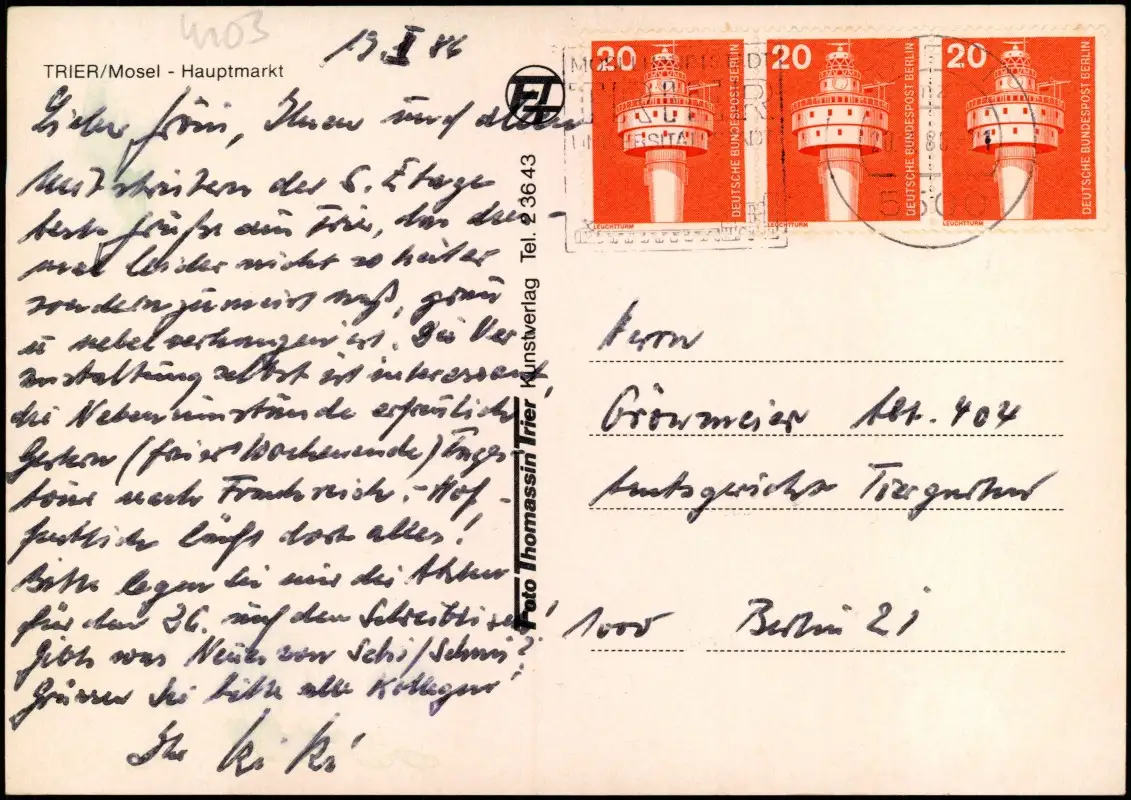 4103
19. II 86
TRIER/Mosel - Hauptmarkt
Lieber Gröni, Ihnen und allen
Mitstreitern der 5. Etage
beste Grüße aus Trier, das dies-
mal leider nicht so heiter
sondern zumeist naß, grau
u nebelverhangen ist. Die Ver
anstaltung selbst ist interessant,
die Nebenumstände erfreulich!
Gestern (freies Wochenende) Tages
tour nach Frankreich. - Hof-
fentlich läuft dort alles!
Bitte legen Sie mir die Akten
für den 26. auf den Schreibtisch!
Gibts was Neues von Schi/Schmi?
Grüssen Sie bitte alle Kollegen!
Ihr KiKi
FT
Foto Thomassin Trier Kunstverlag Tel. 23643
20
DEUTSCHE BUNDESPOST BERLIN
LEUCHTTURM
20
DEUTSCHE BUNDESPOST BERLIN
LEUCHTTURM
20
DEUTSCHE BUNDESPOST BERLIN
LEUCHTTURM
TRIER
UNIVERSITÄTSSTADT
5500
Herrn
Grönmeier Abt. 404
Amtsgericht Tiergarten
1000 Berlin 21